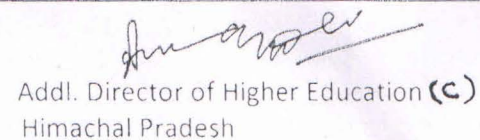 Addl. Director of Higher Education (C)
Himachal Pradesh